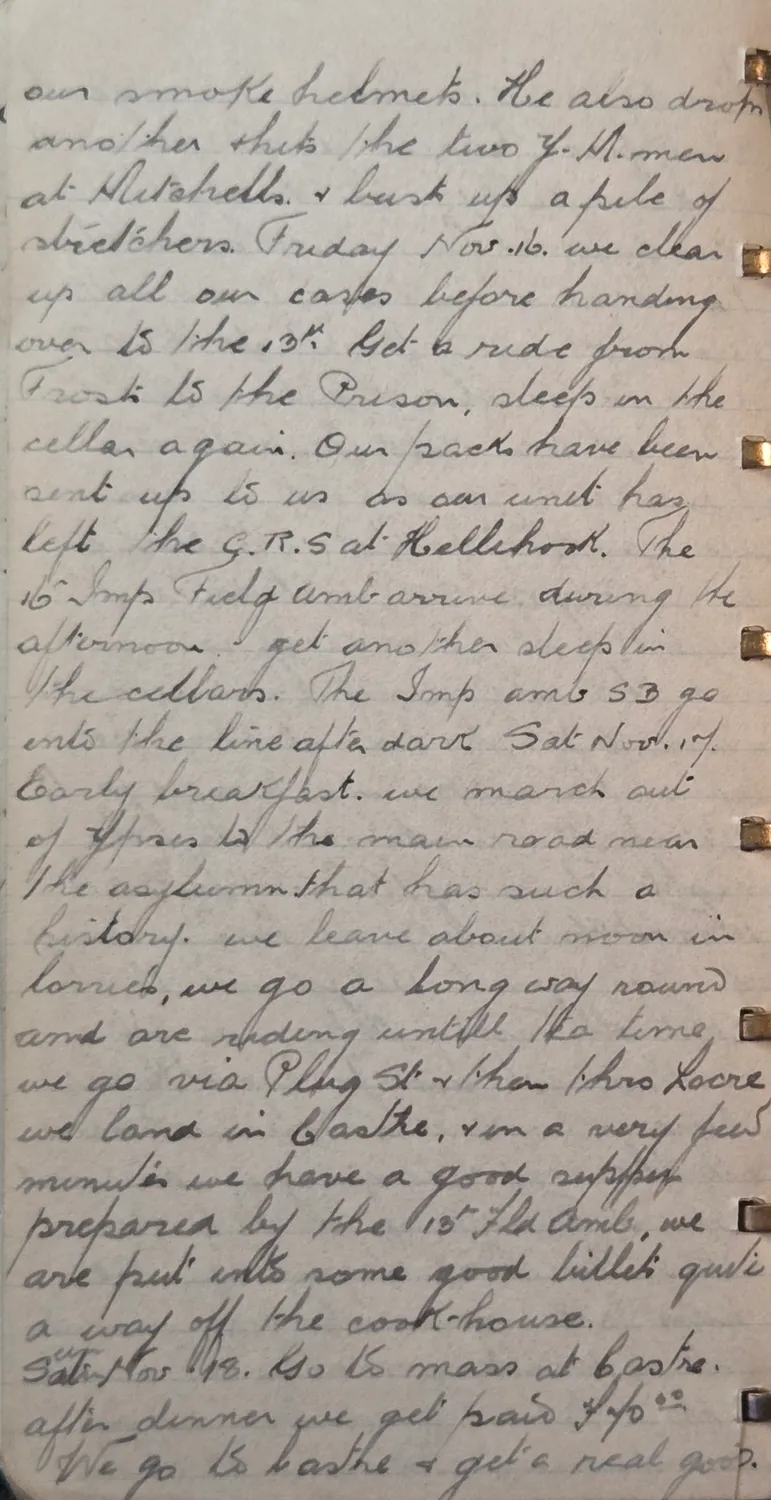 our smoke helmets. He also drops
another & hits the two Y.M. men
at Mitchells. & bust up a pile of
stretchers. Friday Nov. 16. we clear
up all our cases before handing
over to the 13th. Get a ride from
Frost to the Prison, sleep in the
cellar again. Our packs have been
sent up to us as our unit has
left the G.R.S at Hellehoek. The
Imp Field amb arrive during the
afternoon. get another sleep in
the cellars. The Imp amb SB go
into the line after dark Sat Nov. 17.
Early breakfast. we march out
of Ypres to the main road near
the asylumn that has such a
history. we leave about noon in
lorries, we go a long way round
and are riding untill tea time
we go via Plug St & then thro Locre
we land in Castre, & in a very few
minutes we have a good supper
prepared by the Fld Amb, we
are put into some good billets quite
a way off the cook-house.
Nov 18. Go to mass at Castre.
after dinner we get paid
We go to Castre & get a real good.